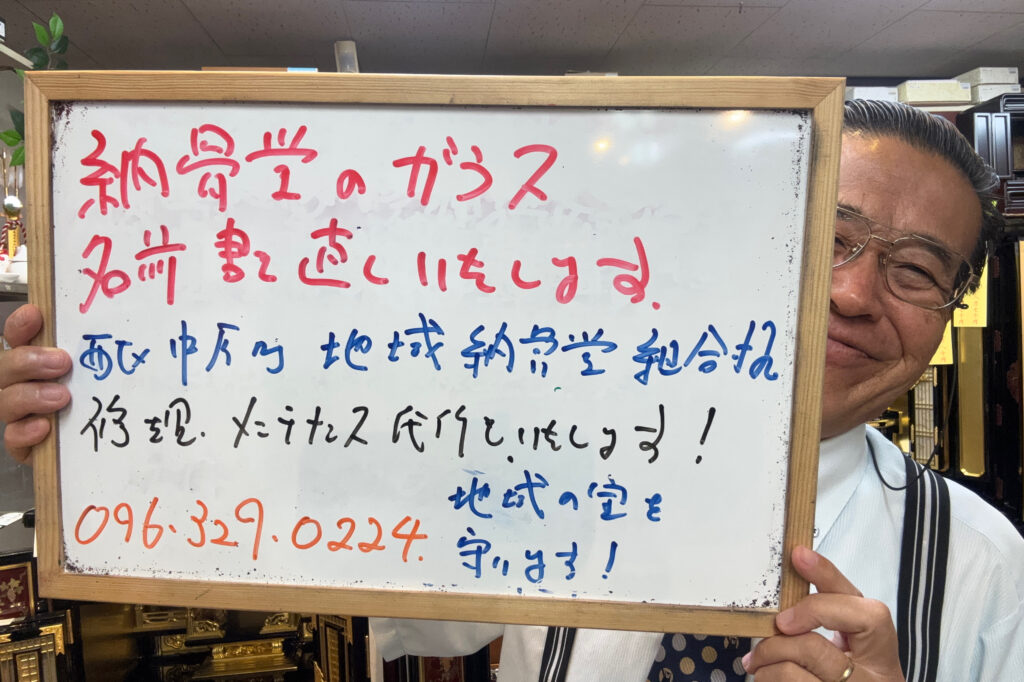 納骨堂のガラス
名前書き直しいたします.
西区中原町 地域納骨堂組合様
修理.メンテナンス代行もいたします!
096.329.0224.
地域の宝を
守ります!